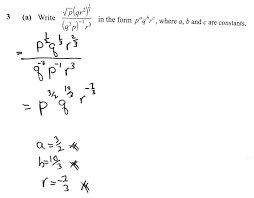 3 (a) Write √p(qr²)^(1/3) / (q³p)⁻¹ r³ in the form p^a q^b r^c, where a, b and c are constants.
= p^(1/2) q^(1/3) r^(2/3) / q⁻³ p⁻¹ r³
= p^(3/2) q^(10/3) r^(-7/3)
a = 3/2
b = 10/3
r = -7/3